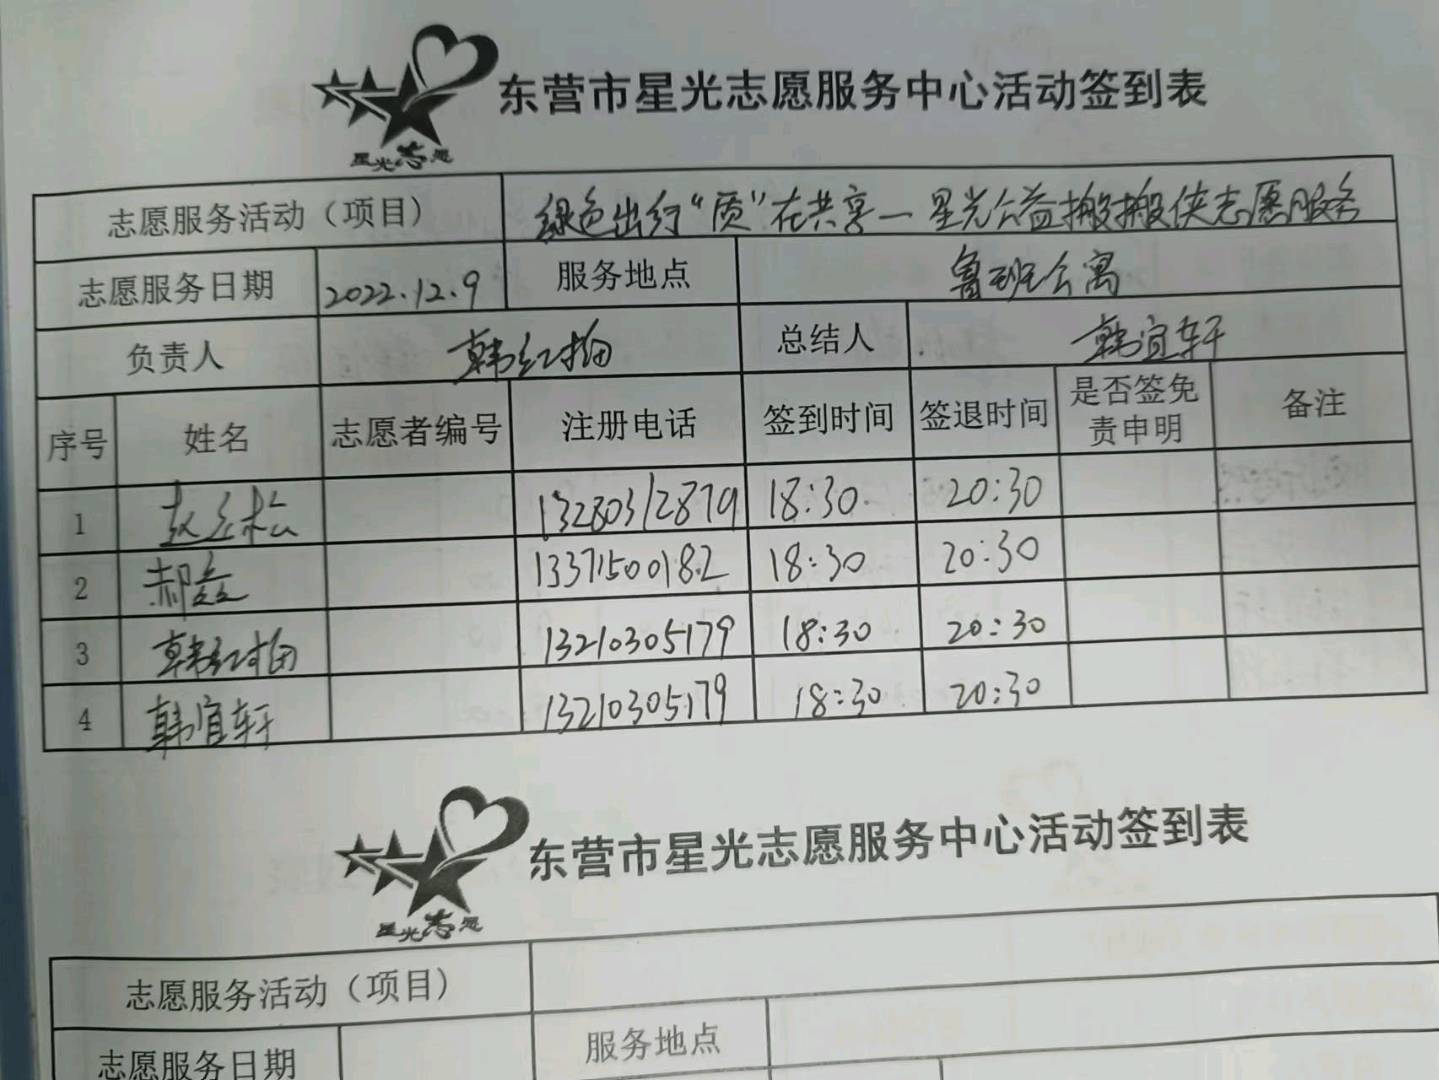 东营市星光志愿服务中心活动签到表
星光志愿
志愿服务活动（项目） 绿色出行“质”在共享—星光公益搬搬侠志愿服务
志愿服务日期 2022.12.9 服务地点 鲁班公寓
负责人 韩红梅 总结人 韩宜轩
序号 姓名 志愿者编号 注册电话 签到时间 签退时间 是否签免责申明 备注
1 13280312879 18:30 20:30
2 郝 13371500182 18:30 20:30
3 韩红梅 13210305179 18:30 20:30
4 韩宜轩 13210305179 18:30 20:30
东营市星光志愿服务中心活动签到表
星光志愿
志愿服务活动（项目）
志愿服务日期 服务地点